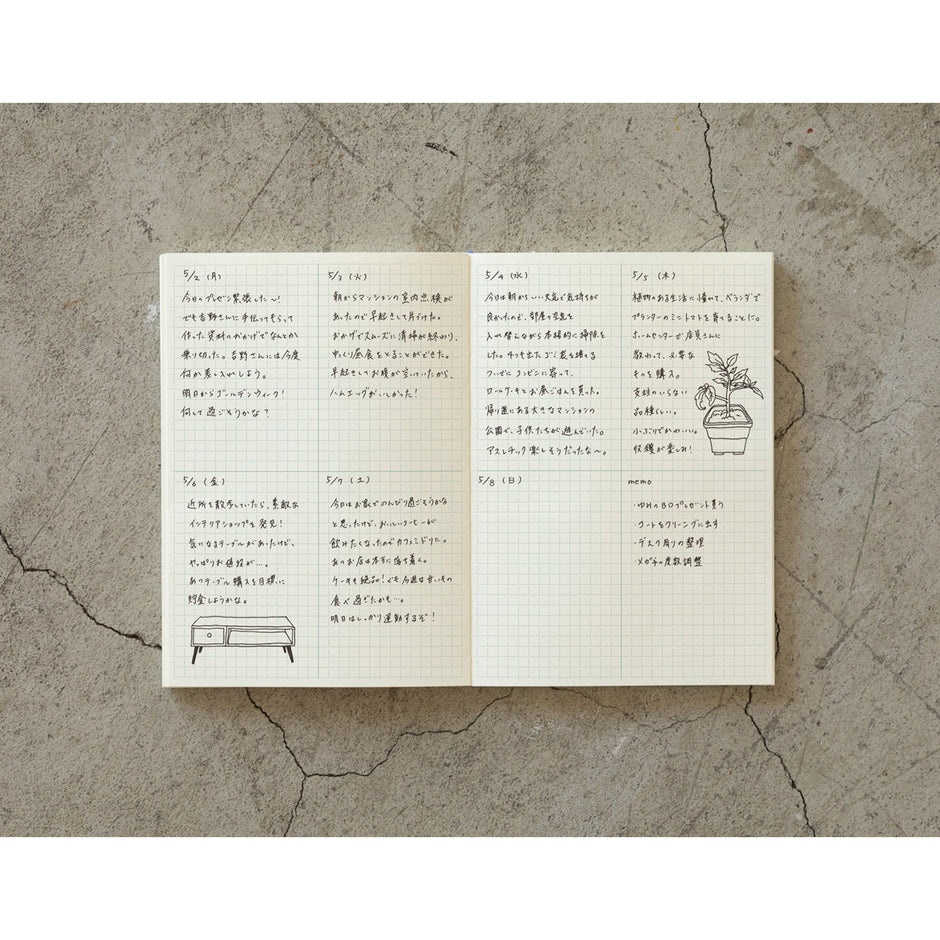 5/2 (月)
今日のプレゼン緊張した〜!
でも吉野さんに手伝ってもらって
作った資料のおかげでなんとか
乗り切った。吉野さんには今度
何か差し入れしよう。
明日からゴールデンウィーク!
何して過ごそうかな?
5/3 (火)
朝からマンションの室内点検が
あったので早起きして片づけた。
おかげでスムーズに清掃が終わり、
ゆっくり昼食をとることができた。
早起きしてお腹が空いていたから、
ハムエッグおいしかった!
5/4 (水)
今日は朝から〜いい天気で気持ちが
良かったので、部屋の空気を
入れ替えながら本格的に掃除を
した。そのまま出たゴミ袋を捨てる
ついでにコンビニに寄って、
ロールケーキとお昼ごはんを買った。
帰り道にある大きなマンションの
公園で、子供たちが遊んでいた。
アスレチック楽しそうだったな〜。
5/5 (木)
植物のある生活に憧れて、ベランダで
プランターのミニトマトを育てることに。
ホームセンターで店員さんに
教わって、必要な
ものを購入。
支柱のいらない
品種らしい。
小ぶりでかわいい。
収穫が楽しみ!
5/6 (金)
近所を散歩していたら、素敵な
インテリアショップを発見!
気になるテーブルがあったけど、
やっぱりお値段が…。
あのテーブル購入を目標に
貯金しようかな。
5/7 (土)
今日はお家でのんびり過ごそうかな
と思ったけど、おいしいコーヒーが
飲みたくなったのでカフェミドリに。
あのお店は本当に落ち着く。
ケーキも絶品!でも今週は甘いもの
食べ過ぎたかも…。
明日はしっかり運動するぞ!
5/8 (日)
memo
・ゆみのBDプレゼント買う
・コートをクリーニングに出す
・デスク周りの整理
・メガネの度数調整